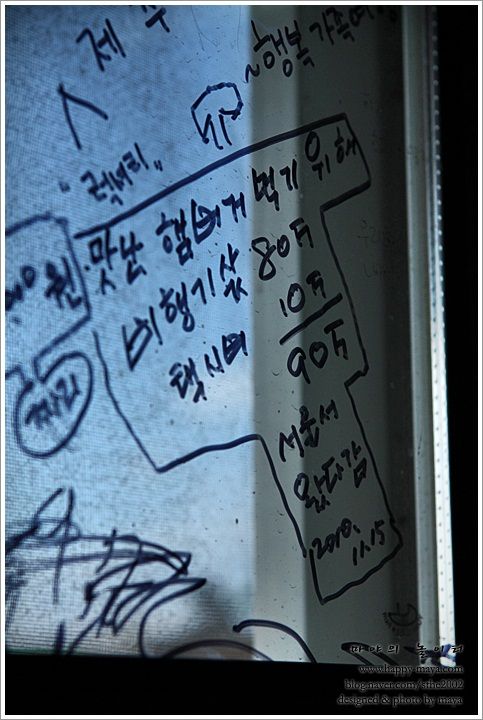 제주
~행복가족여
"럭셔리"
맛난 햄버거 먹기 위해
비행기삯 80만
택시비 10만
90만
원
서울서
왔다감
2010.
11.15
마야의 놀이터
www.happy-maya.com
blog.naver.com/sthe2002
designed & photo by maya